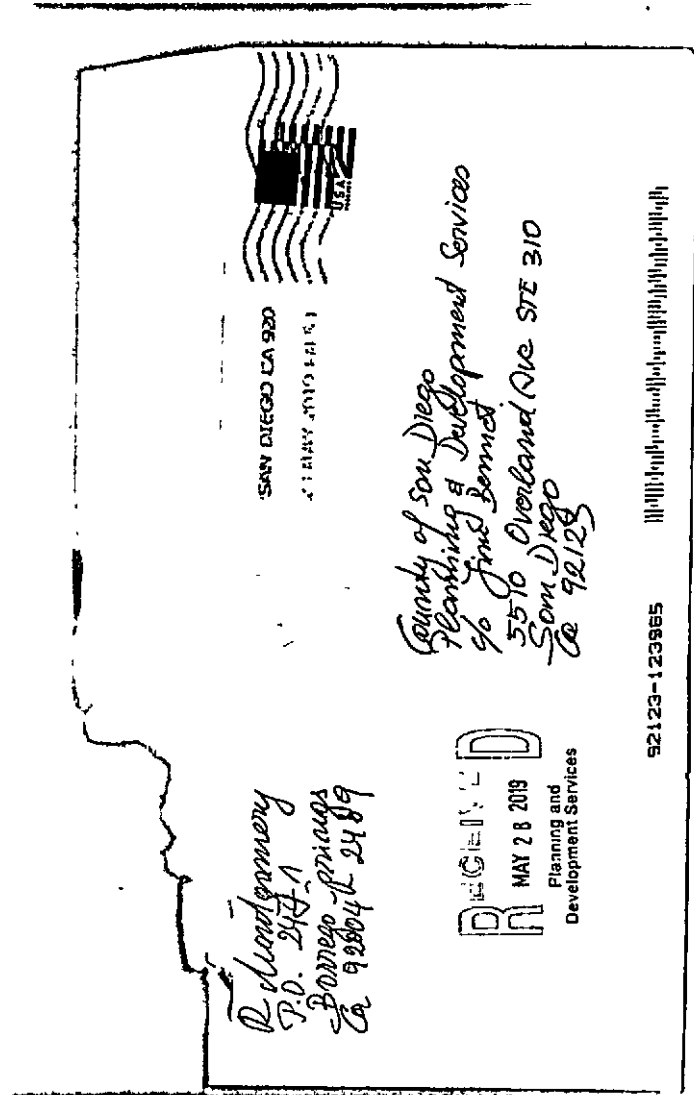 R Montgomery
P.O. 2471
Borrego Springs
Ca 92004 - 2489
SAN DIEGO CA 920
MAY 2019
USA
County of San Diego
Planning & Development Services
c/o Jim Bennet
5510 Overland Ave STE 310
San Diego
Ca 92123
RECEIVED
MAY 28 2019
Planning and
Development Services
92123-123965